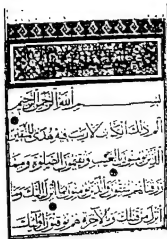 بسم الله الرحمن الرحيم
الم ذلك الكتاب لا ريب فيه هدى للمتقين
الذين يؤمنون بالغيب ويقيمون الصلوة ومما
رزقناهم ينفقون والذين يؤمنون بما انزل اليك وما
انزل من قبلك وبالاخرة هم يوقنون اولئك